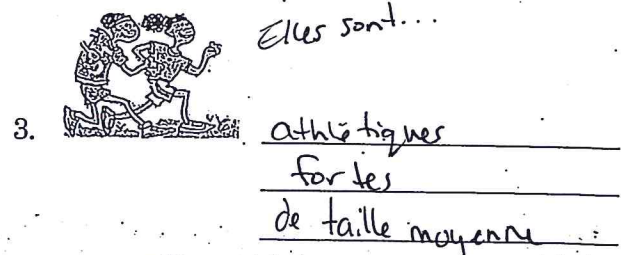 Elles sont...
3.
athlétiques
fortes
de taille moyenne